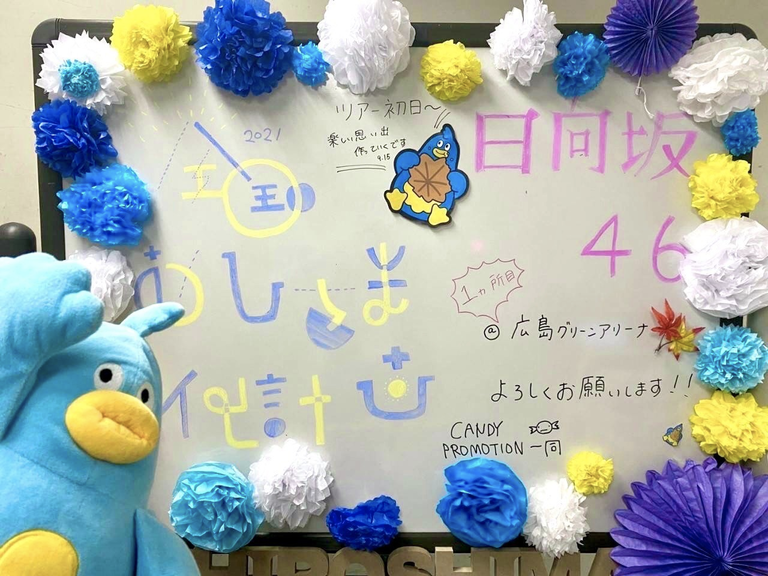 2021
全国
おひさま
化計画
ツアー初日~
楽しい思い出
作っていくです
9.15
日向坂
46
1ヵ所目
@ 広島グリーンアリーナ
よろしくお願いします!!
CANDY
PROMOTION 一同
HIROSHIMA